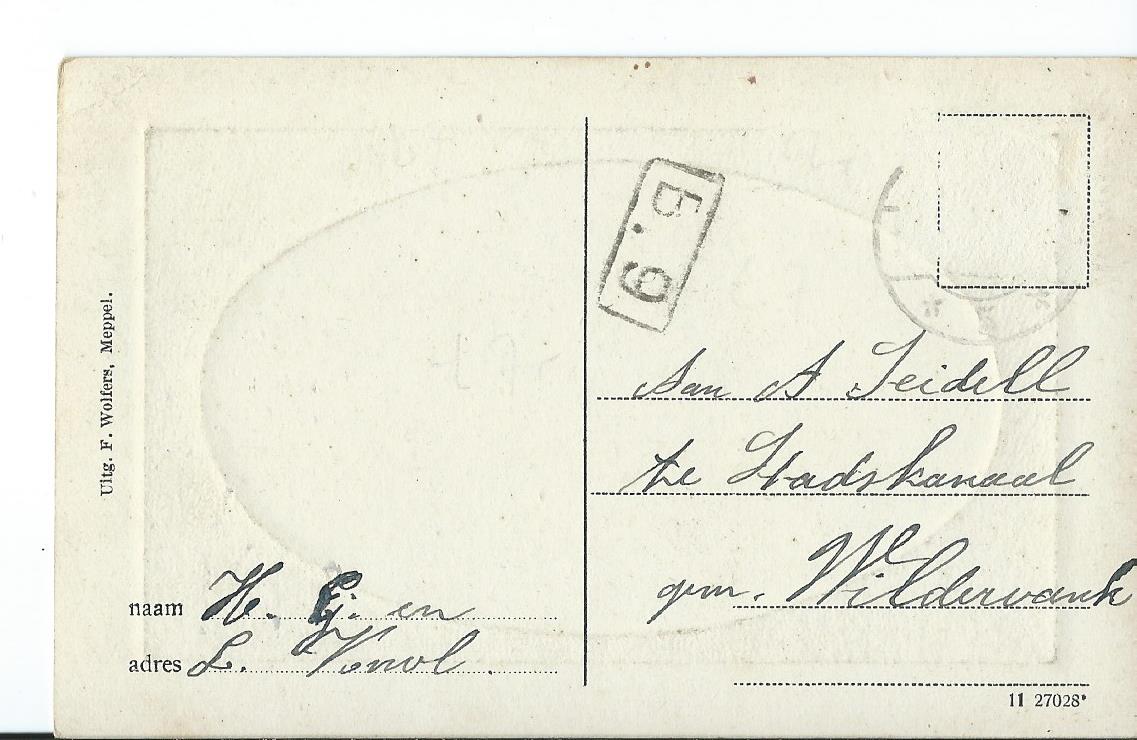 Uitg. F. Wolfers, Meppel.
B.9
Aan A Seidell
te Stadskanaal
gem. Wildervank
naam H. G. en
adres L.
11 27028*